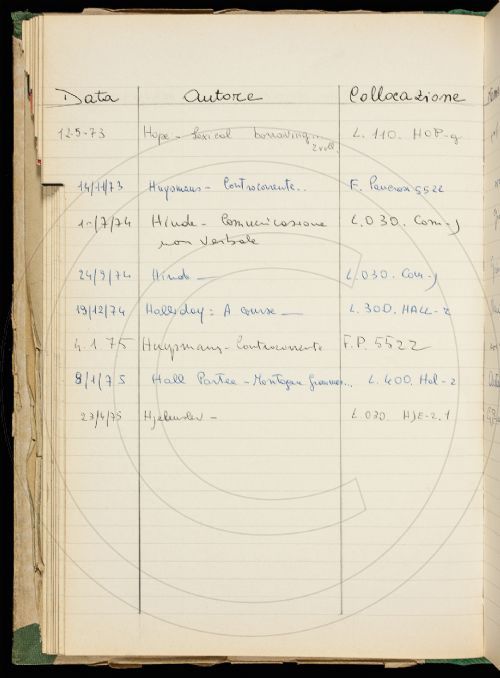 Data Autore Collocazione
12-5-73 Hope - Lexical borrowing... L. 110. HOP-g
2 voll.
14/11/73 Huysmans - Controcorrente.. F. 5522
1-/7/74 Hinde - Comunicazione L.030. Com-j
non verbale
24/9/74 Hinde — L.030. Com-j
19/12/74 Halliday: A course — L. 300. HALL-2
4.1.75 Huysmans - Controcorrente F.P. 5522
8/1/75 Hall Partee - Montague Grammar... L. 400. Hal-2
23/4/75 Hjelmslev - L 030. HJE-2.1